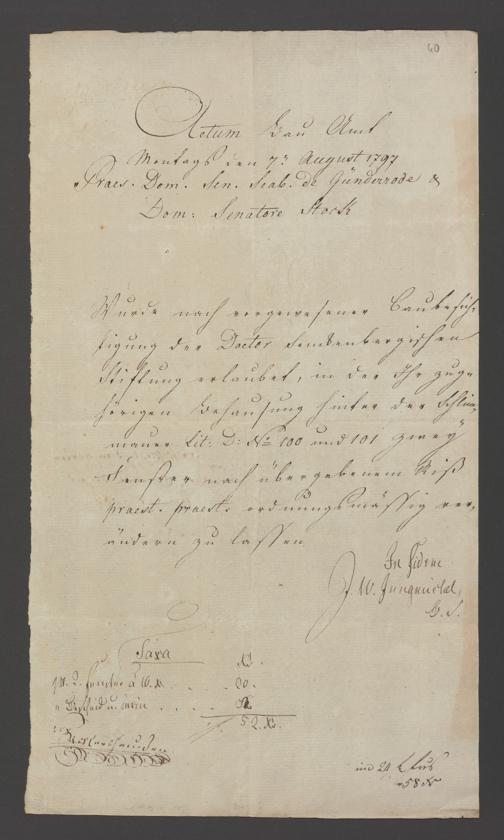 60
Actum Bau Amt
Montags den 7n August 1797
Praes. Dom. Sen. Scab. de Günderrode &
Dom: Senatore Stock
Wurde nach vorgewesener Baubesich-
tigung der Doctor Senkenbergischen
Stiftung erlaubet, in der Ihr zuge-
hörigen Behausung hinter der Schlim-
mauer Lit: D: No 100 und 101 zwey
Fenster nach übergebenem Riß
praest. praest. ordnungsmässig ver-
ändern zu lassen
In fidem
J. W.
Taxa
2. Fenster à 10.
20.
52.